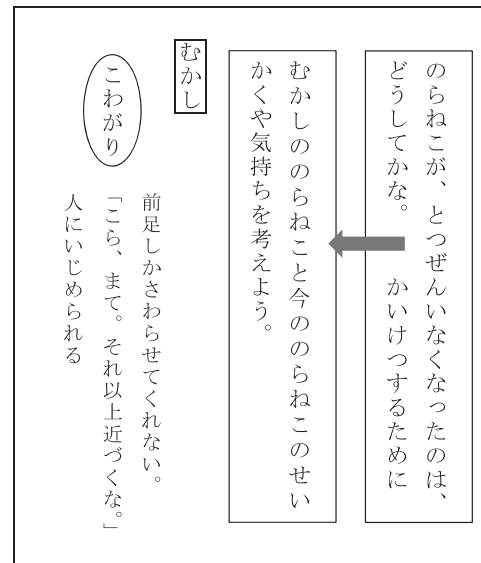 のらねこが、とつぜんいなくなったのは、
どうしてかな。　　かいけつするために
むかしののらねこと今ののらねこのせい
かくや気持ちを考えよう。
むかし
こわがり
前足しかさわらせてくれない。
「こら、まて。それ以上近づくな。」
人にいじめられる